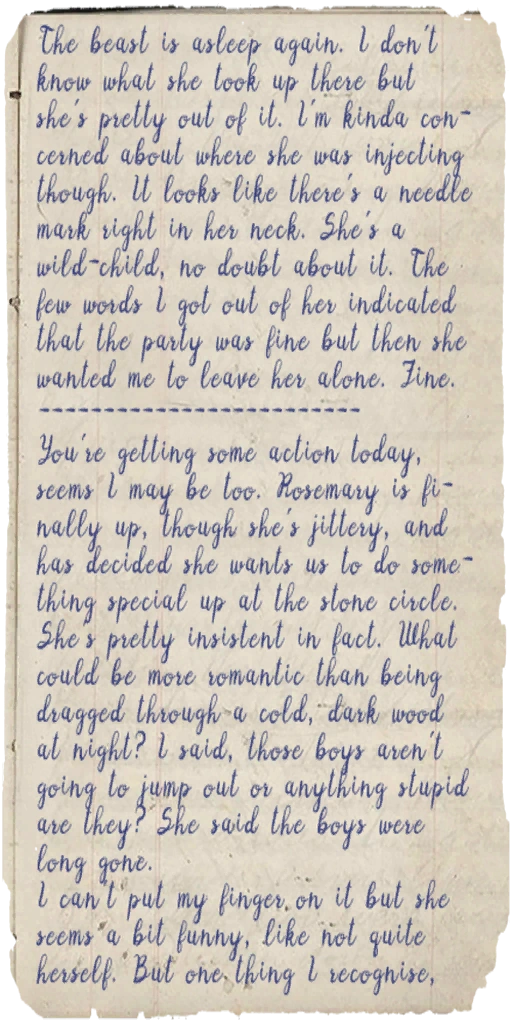 The beast is asleep again. I don't
know what she took up there but
she's pretty out of it. I'm kinda con-
cerned about where she was injecting
though. It looks like there's a needle
mark right in her neck. She's a
wild-child, no doubt about it. The
few words I got out of her indicated
that the party was fine but then she
wanted me to leave her alone. Fine.
------------------------
You're getting some action today,
seems I may be too. Rosemary is fi-
nally up, though she's jittery, and
has decided she wants us to do some-
thing special up at the stone circle.
She's pretty insistent in fact. What
could be more romantic than being
dragged through a cold, dark wood
at night? I said, those boys aren't
going to jump out or anything stupid
are they? She said the boys were
long gone.
I can't put my finger on it but she
seems a bit funny, like not quite
herself. But one thing I recognise,